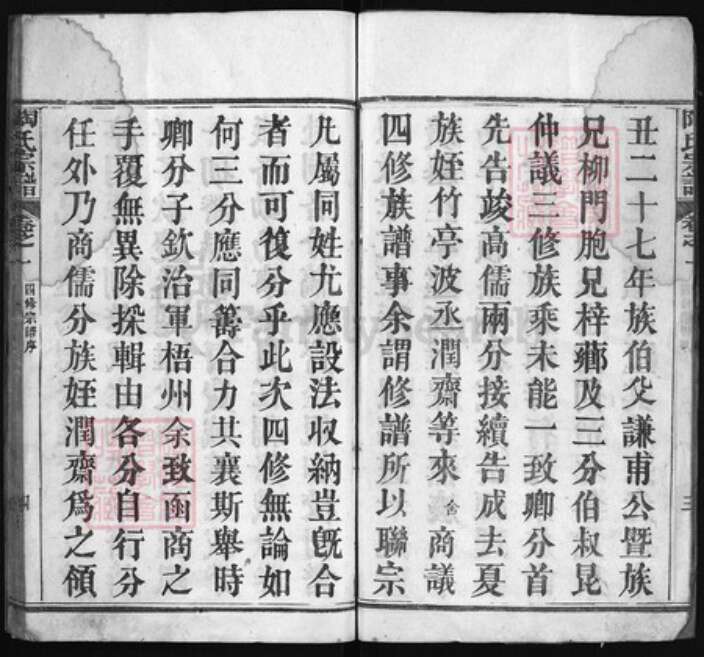 丑二十七年族伯父謙甫公暨族
兄柳門胞兄梓薌及三分伯叔昆
仲議三修族乘未能一致卿分首
先告竣高儒兩分接續告成去夏
族姪竹亭波丞潤齋等來舍商議
四修族譜事余謂修譜所以聯宗
凡屬同姓尤應設法收納豈旣合
者而可復分乎此次四修無論如
何三分應同籌合力共襄斯舉時
卿分子欽治軍梧州余致函商之
手覆無異除採輯由各分自行分
任外乃商儒分族姪潤齋爲之傾
陶氏宗譜
卷之一
四修宗譜序